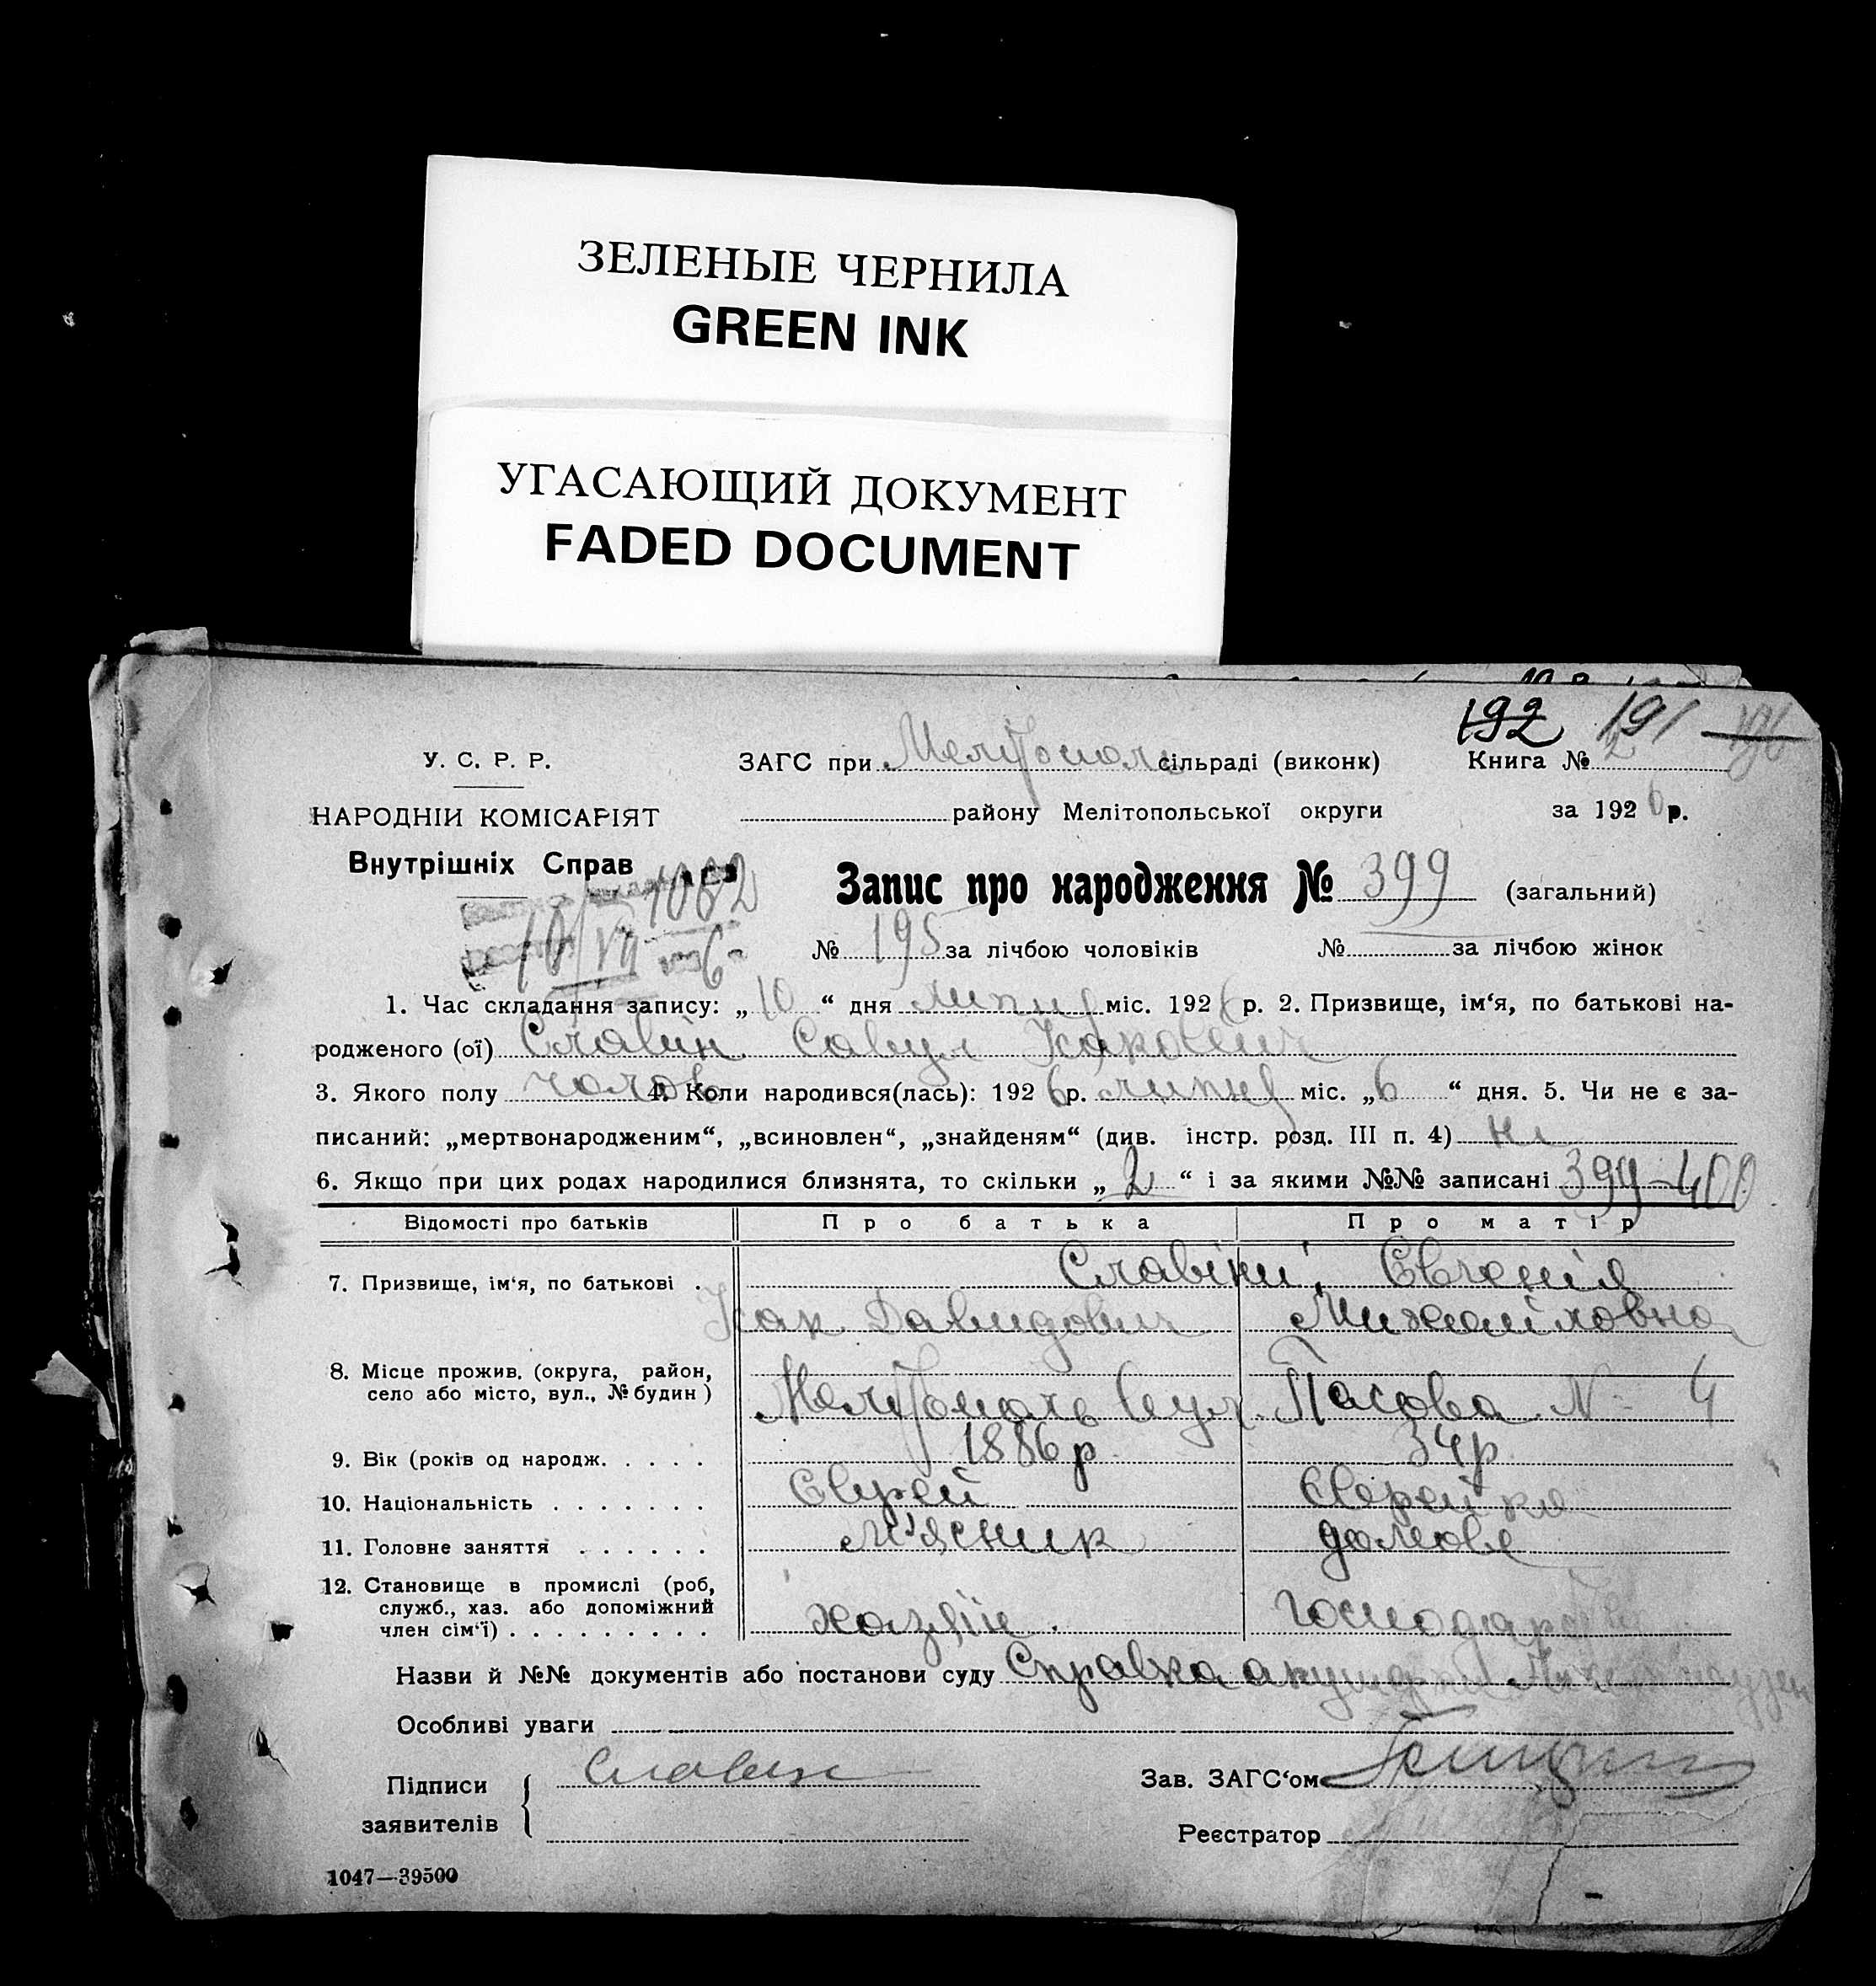 ЗЕЛЕНЫЕ ЧЕРНИЛА
GREEN INK
УГАСАЮЩИЙ ДОКУМЕНТ
FADED DOCUMENT
192 191
У. С. Р. Р. ЗАГС при Мелітополь сільраді (виконк) Книга № 2
НАРОДНІИ КОМІСАРІЯТ району Мелітопольської округи за 1926 р.
Внутрішніх Справ
1082
10/VII 6
Запис про народження № 399 (загальний)
№ 195 за лічбою чоловіків № за лічбою жінок
1. Час складання запису: „ 10 “ дня липня міс. 1926 р. 2. Призвище, ім‘я, по батькові на-
родженого (ої) Славін Савул Ісакович
3. Якого полу чолов 4. Коли народився(лась): 1926 р. липня міс. „ 6 “ дня. 5. Чи не є за-
писаний: „мертвонародженим“, „всиновлен“, „знайденям“ (див. інстр. розд. III п. 4) ні
6. Якщо при цих родах народилися близнята, то скільки „ 2 “ і за якими №№ записані 399-400
Відомості про батьків Про батька Про матір
7. Призвище, ім‘я, по батькові . Славіни, Євгенія
Ісак Давидович Михайловна
8. Місце прожив. (округа, район,
село або місто, вул., № будин ) Мелітополь вул. № 4
9. Вік (років од народж. . . . . 1886 р. 34 р.
10. Національність . . . . . . . Єврей Єврейка
11. Головне заняття . . . . . . М'ясник домове
12. Становище в промислі (роб,
служб., хаз. або допоміжний
член сім‘ї) . . . . . . . . . хазяїн. господарство
Назви й №№ документів або постанови суду Справка акушерки
Особливі уваги
Підписи Славин Зав. ЗАГС‘ом
заявителів Реєстратор
1047—39500